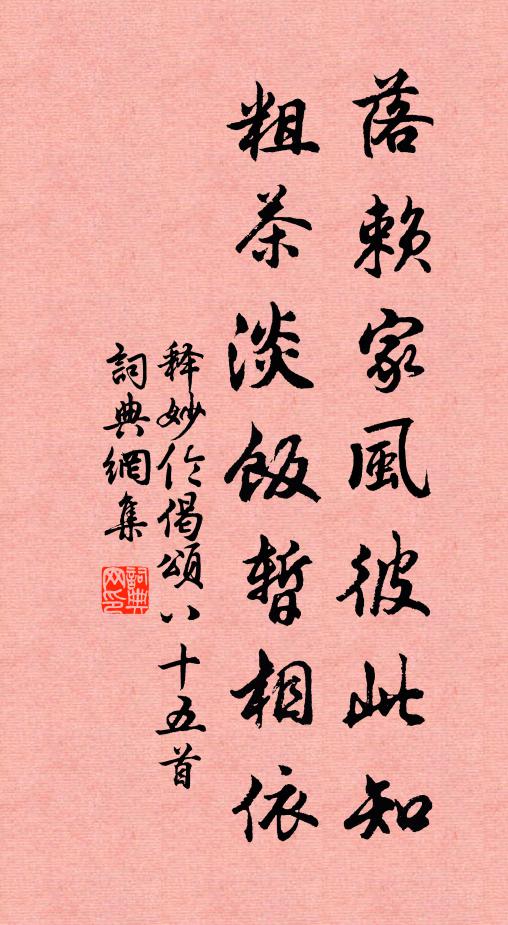 落賴家風彼此知
粗茶淡飯暫相依
釋妙伦偈頌八十五首
詞典網集
詞典網印